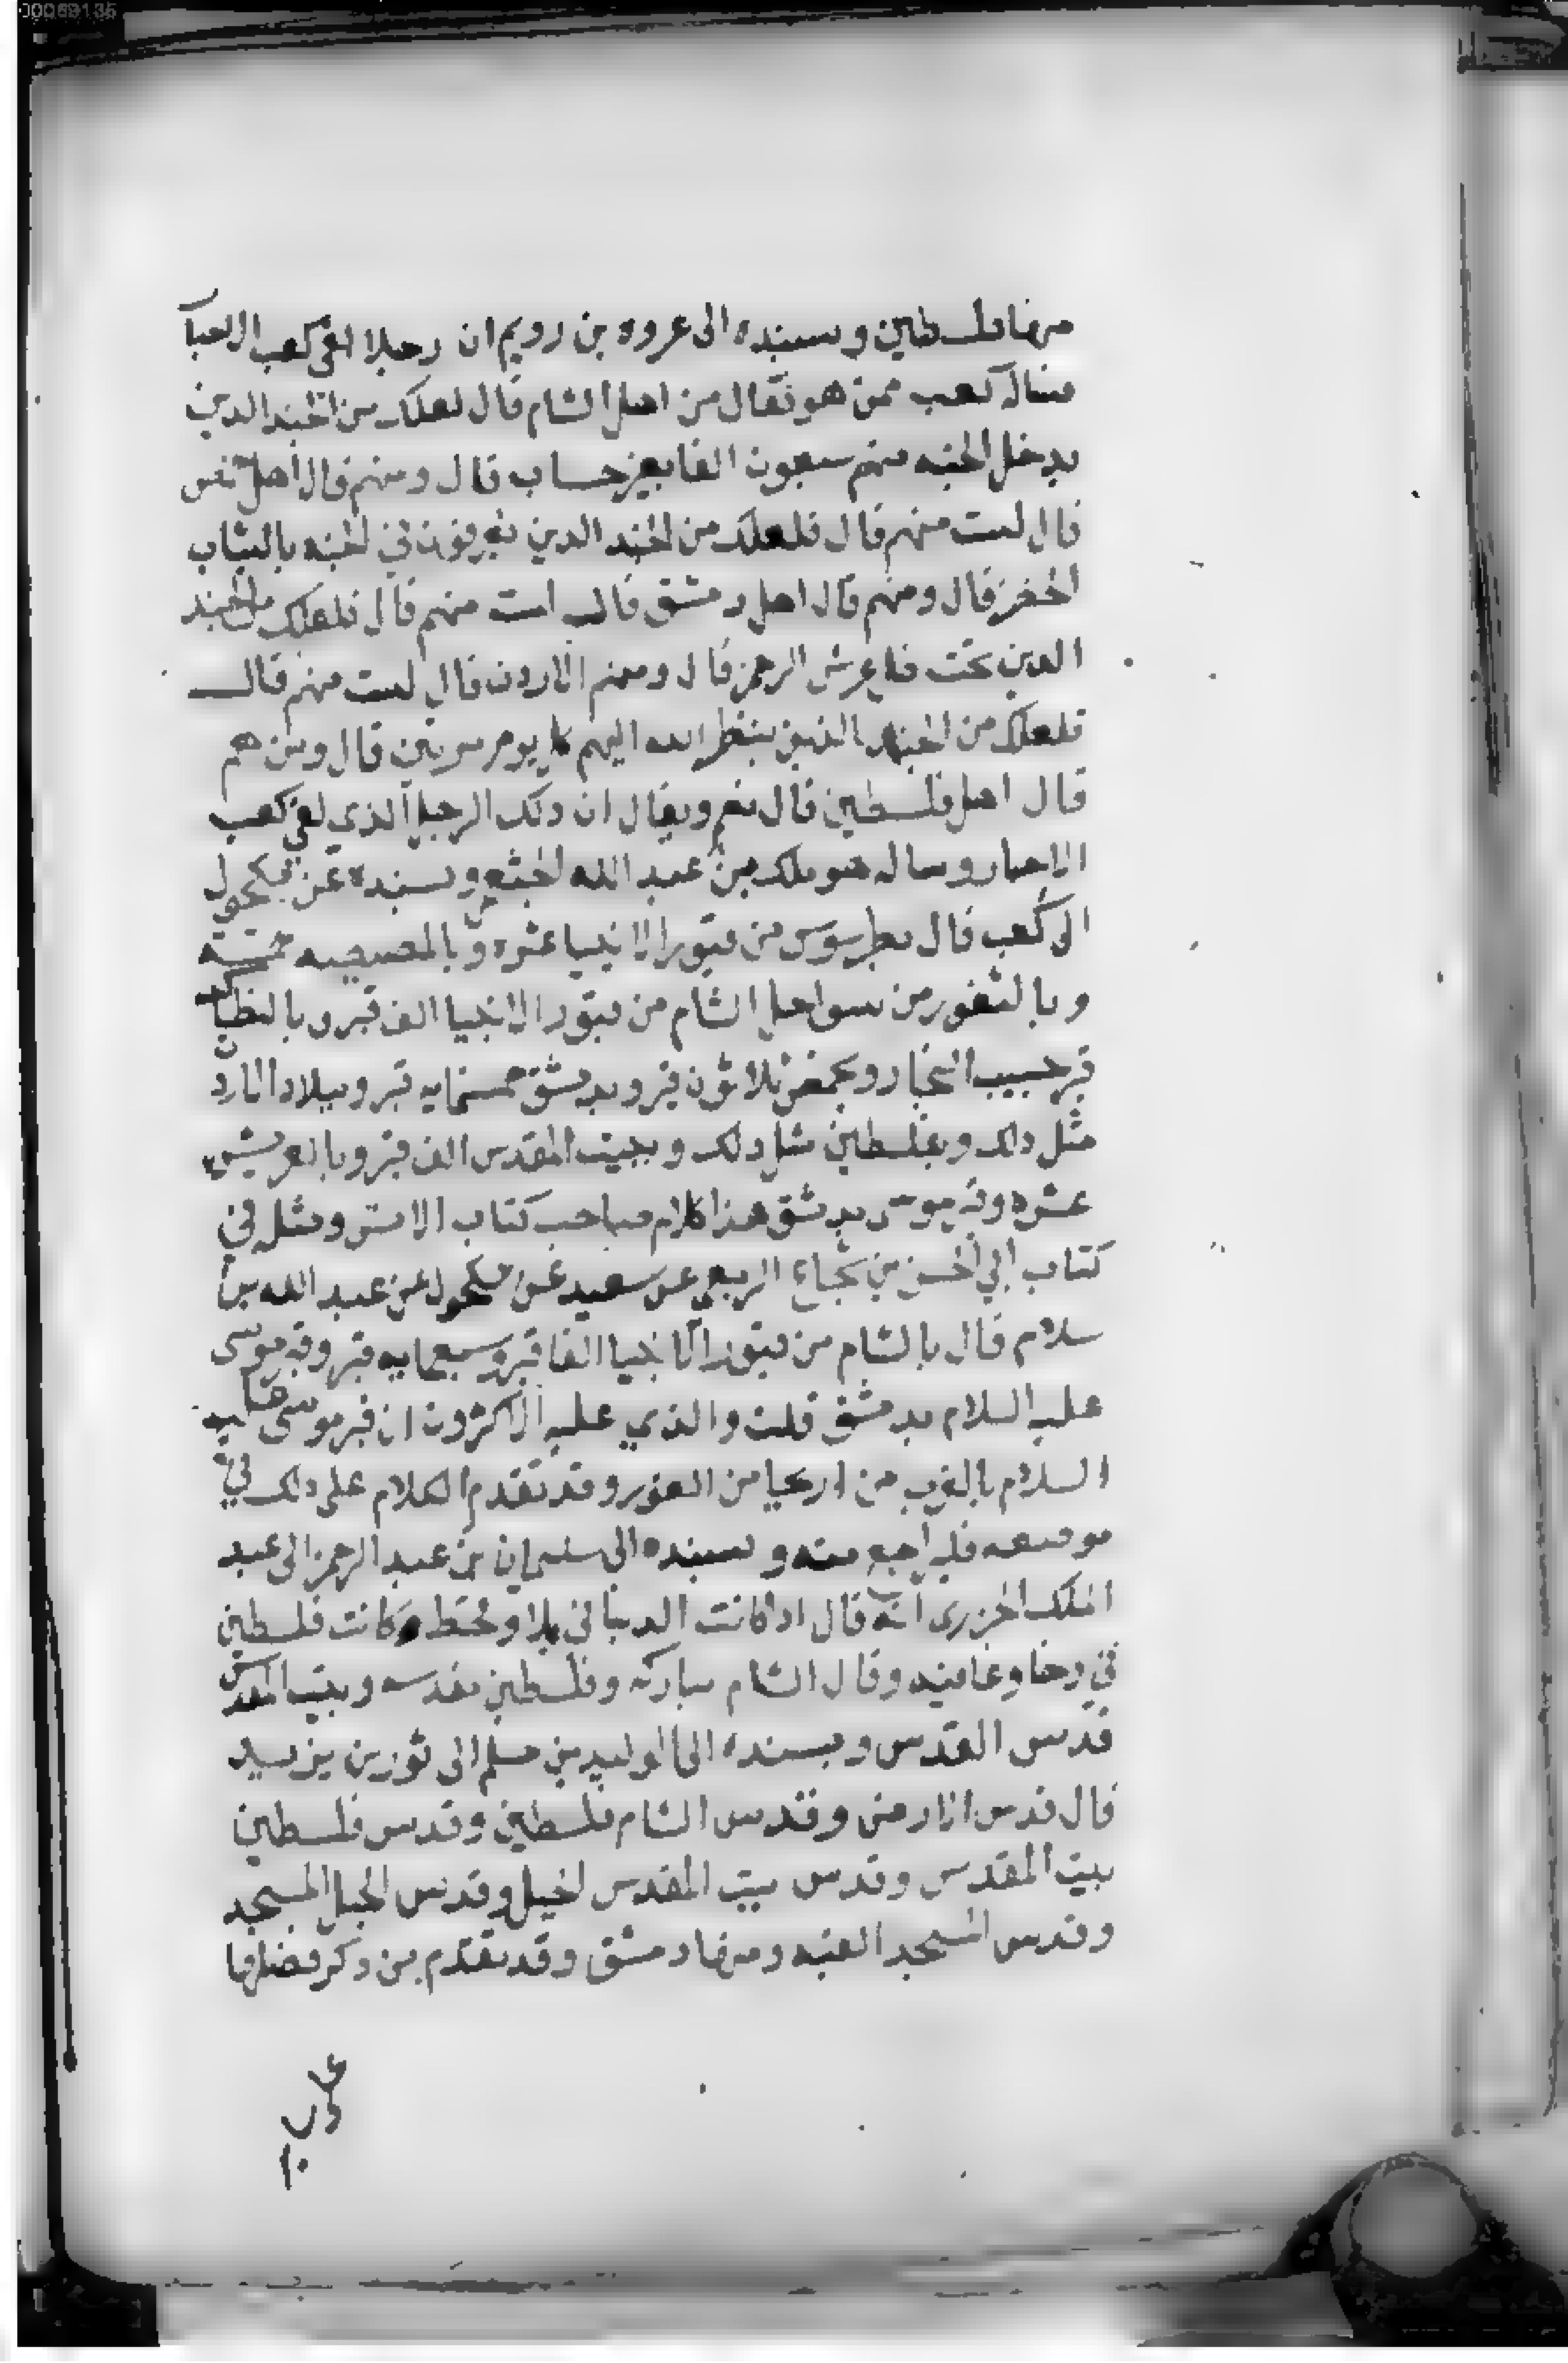 منها فلسطين وبسنده الى عروه بن رويم ان رجلا لقي كعب الاحبا
فساله كعب ممن هو فقال من اهل الشام قال لعلك من الجند الدين
يدخل الجنه منهم سبعون الفا بغير حساب قال ومنهم قال اهل حمص
قال لست منهم قال فلعلك من الجند الدين يعرفون في الجنه بالثياب
الخضر قال ومنهم قال اهل دمشق قال لست منهم قال فلعلك من الجند
الدين تحت ظل عرش الرحمن قال ومنهم الاردن قال لست منهم قال
فلعلك من الجند الذين ينظر الله اليهم كل يوم مرتين قال ومن هم
قال اهل فلسطين قال نعم ويقال ان ذلك الرجل الذي لقي كعب
الاحبار وساله هو ملك بن عبد الله الخثعمي وبسنده عن مكحول
الى كعب قال بطرسوس من قبور الانبيا عشره وبالمصيصه خمسة
وبالثغور من سواحل الشام من قبور الانبيا الف قبر وبانطاكيه
قبر حبيب النجار وبحمص ثلاثون قبر وبدمشق خمسمايه قبر وببلاد الاردن
مثل ذلك وبفلسطين مثل ذلك وببيت المقدس الف قبر وبالعريش
عشره وقبر موسى بدمشق هذا كلام صاحب كتاب الانس ومثله في
كتاب ابي الحسن بن شجاع الربعي عن سعيد عن مكحول عن عبد الله بن
سلام قال بالشام من قبور الانبيا الفا قبر وسبعمايه قبر وقبر موسى
عليه السلام بدمشق قلت والذي عليه الاكثرون ان قبر موسى عليه
السلام بالقرب من اريحا من الغور وقد تقدم الكلام على ذلك في
موضعه فليراجع منه وبسنده الى سليمان بن عبد الرحمن الى عبد
الملك الجزري انه قال اذا كانت الدنيا في بلا وقحط كانت فلسطين
في رخا وعافيه وقال الشام مباركه وفلسطين مقدسه وبيت المقدس
قدس القدس وبسنده الى الوليد بن مسلم الى ثور بن يزيد
قال قدس الارض وقدس الشام فلسطين وقدس فلسطين
بيت المقدس وقدس بيت المقدس الجبل وقدس الجبل المسجد
وقدس المسجد القبه ومنها دمشق وقد تقدم من ذكر فضلها